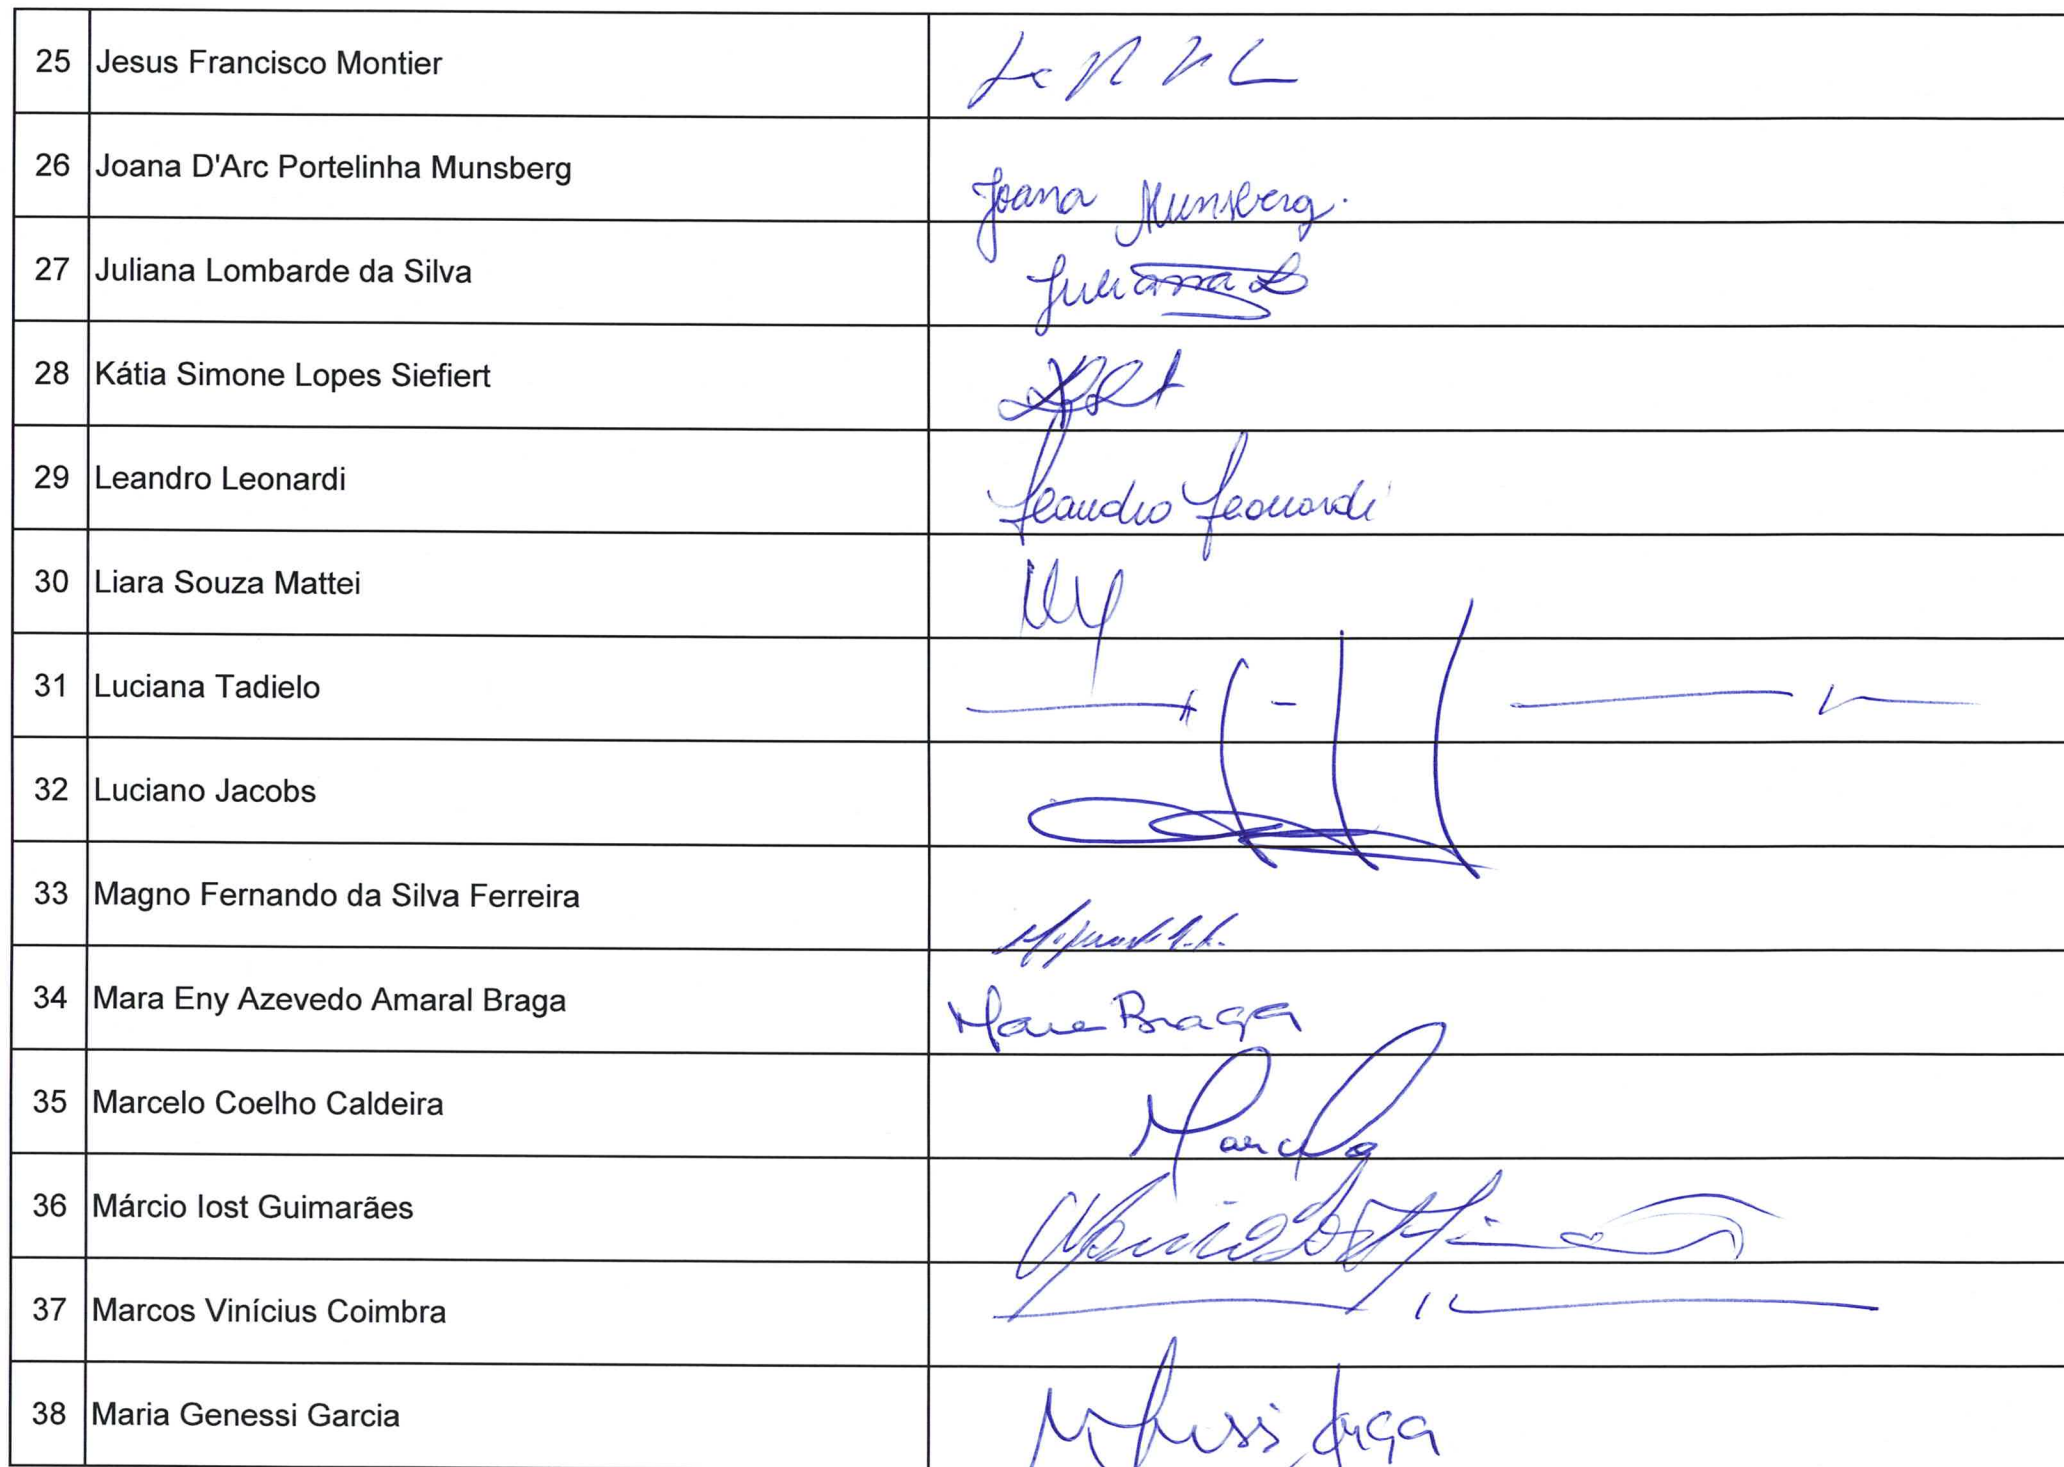 25 Jesus Francisco Montier
26 Joana D'Arc Portelinha Munsberg Joana Munsberg.
27 Juliana Lombarde da Silva Juliana L
28 Kátia Simone Lopes Siefiert
29 Leandro Leonardi Leandro Leonardi
30 Liara Souza Mattei
31 Luciana Tadielo
32 Luciano Jacobs
33 Magno Fernando da Silva Ferreira
34 Mara Eny Azevedo Amaral Braga Mara Braga
35 Marcelo Coelho Caldeira Marcelo
36 Márcio Iost Guimarães
37 Marcos Vinícius Coimbra
38 Maria Genessi Garcia